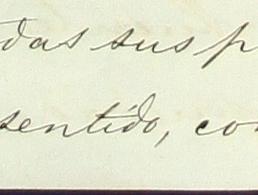 das sus p
sentido, con